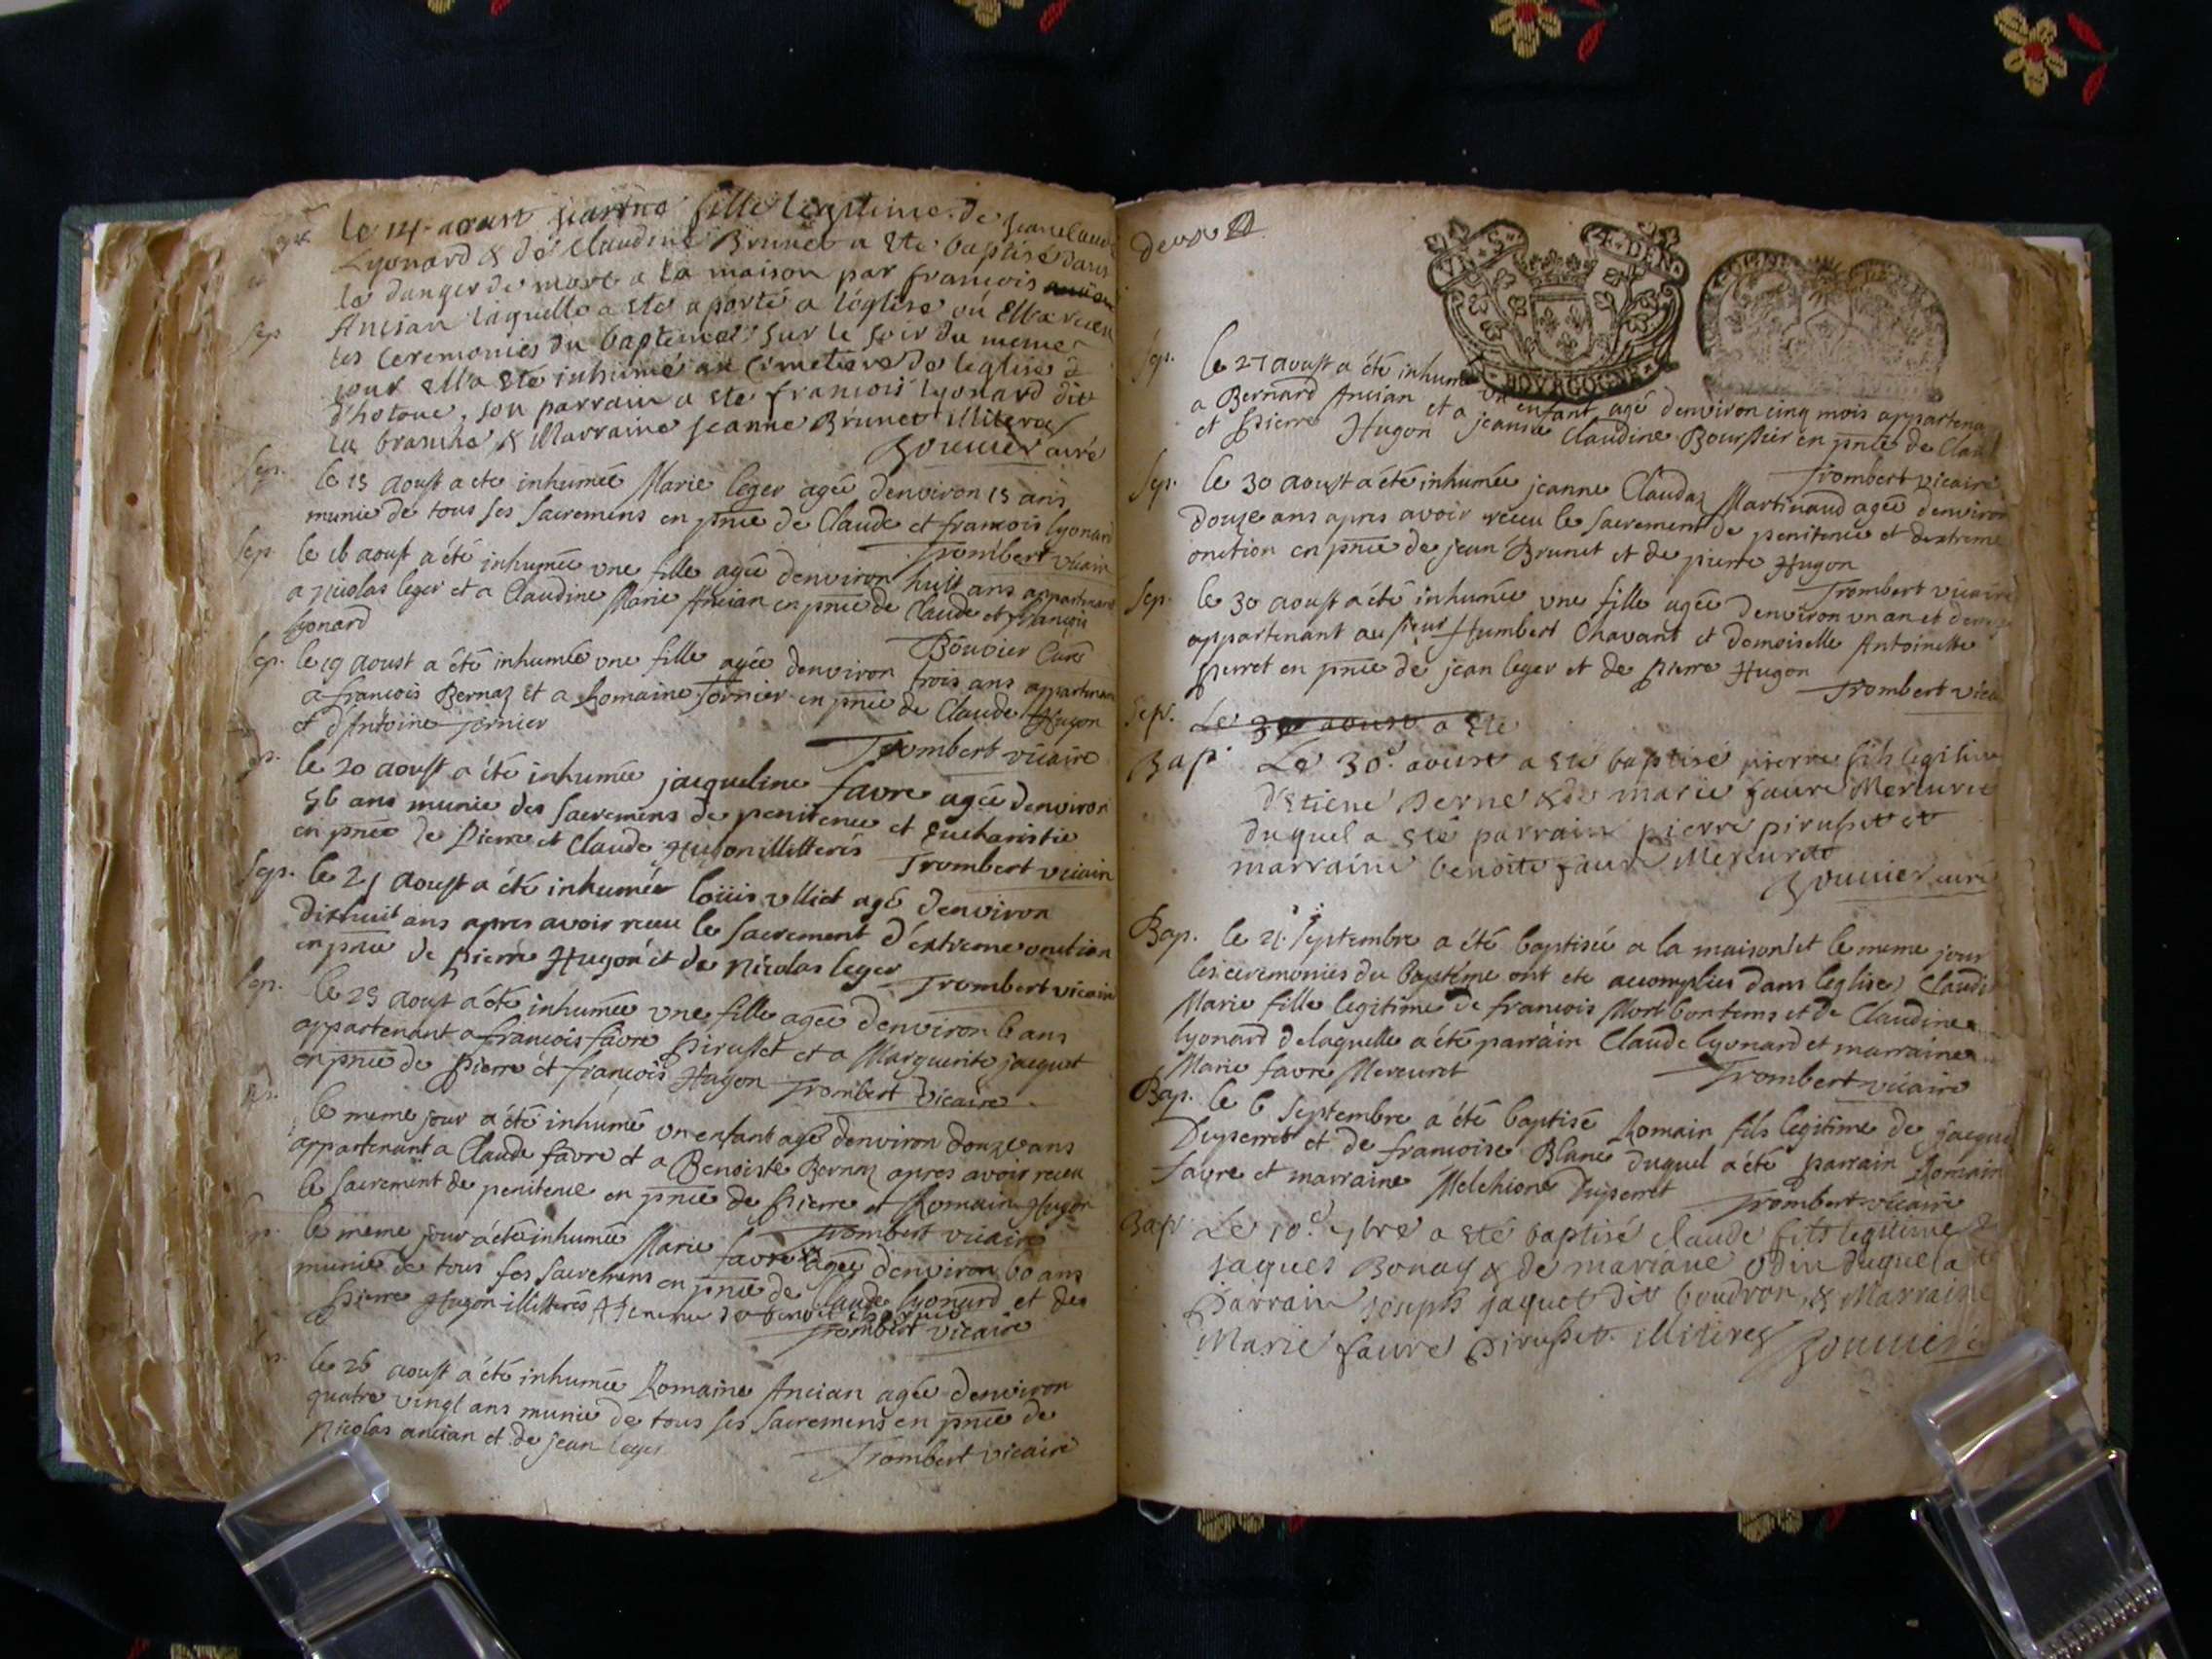 le 14 aoust jeanne fille legitime de jeanclaude
Lyonard & de Claudine Brunet a ete baptisé dans
le danger de mort a la maison par francois
Ancian laquelle a ete aporté a léglise où Ella receu
les Ceremonies du bapteme sur le soir du meme
Sep.
jour ella eté inhumé au Cimetiere de leglise
d'hotone, son parrain a ete francois lyonard dit
la branche & Marraine jeanne Brunet
Bouvier curé
Sep.
le 15 aoust a ete inhumée Marie leger agée denviron 15 ans
munie de tous ses Sacremens en pnce de Claude et francois lyonard
Trombert vicair
Sep.
le 16 aoust a été inhumée une fille agée denviron huit ans appartenant
a nicolas leger et a Claudine Marie Ancian en pnce de Claude et françois
lyonard
Bouvier Curé
Sep.
le 19 aoust a été inhumée une fille agée denviron trois ans appartenan
a francois Bernaz et a Romaine Tornier en pnce de Claude Hugon
et d'Antoine Tornier
Trombert vicaire
le 20 aoust a été inhumée jacqueline favre agée denviron
56 ans munie des sacremens de penitence et Eucharistie
en pnce de Pierre et Claude Hugon illitterés
Trombert vicair
Sep.
le 21 aoust a été inhumée loüis ulliet agé denviron
dixhuit ans apres avoir receu le Sacrement d'extreme onction
en pnce de pierre Hugon et de Nicolas leger
Trombert vicair
Sep.
le 25 aoust a été inhumée une fille agée denviron 6 ans
appartenant a francois favre Pirusset et a Marguerite jacquet
en pnce de pierre et françois Hugon Trombert vicaire
le meme jour a été inhumé un enfant agé denviron douze ans
appartenant a Claude favre et a Benoiste Bernaz apres avoir receu
le sacrement de penitence en pnce de Pierre et Romain Hugon
Trombert vicaire
le meme jour a été inhumée Marie favre agée denviron 60 ans
munie de tous ses sacremens en pnce de Claude lyonard et de
Pierre Hugon illitterés
Trombert vicaire
le 26 aoust a été inhumée Romaine Ancian agée denviron
quatre vingt ans munie de tous ses sacremens en pnce de
Nicolas ancian et de jean leger
Trombert vicaire
deux
VN S 4 DEN
BOVRGOGNE
Sep.
le 27 aoust a été inhumé un enfant agé denviron cinq mois appartena
a Bernard Ancian et a jeanne Claudine Boursier en pnce de Clau
et Pierre Hugon
Trombert vicaire
Sep.
le 30 aoust a été inhumée jeanne Claudaz Martinand agée denviron
douze ans apres avoir receu le sacrement de penitence et dextreme
onction en pnce de jean Brunet et de pierre Hugon
Trombert vicaire
Sep.
le 30 aoust a été inhumée une fille agée denviron un an et demy
appartenant au sieur Humbert Chavant et demoiselle Antoinette
perret en pnce de jean leger et de Pierre Hugon
Trombert vica
Sep.
Le 30 aoust a ete
Bap.
Le 30e. aoust a ete baptisé pierre fils legitime
d'Etiene Berne & de marie faure Mercuret
duquel a eté parrain pierre pirusset et
marraine benoite faure Mercuret
Bouvier curé
Bap.
le 2e. Septembre a été baptisée a la maison et le meme jour
les ceremonies du Baptéme ont ete accomplies dans leglise, Claudi
Marie fille legitime de francois Montbontems et de Claudine
lyonard de laquelle a été parrain Claude lyonard et marraine
Marie favre Mercuret
Trombert vicaire
Bap.
le 6 Septembre a été baptisé Romain fils legitime de jacque
Duperret et de francoise Blanc duquel a été parrain Romain
favre et marraine Melchione Duperret
Trombert vicaire
Bap
Le 10e. 7bre a eté baptisé claude fils legitime d
jaques Bonay & de mariane odin duquel a
Parrain joseph jaquet dit boudron, & Marraine
Marie faure Pirusset. illiteres Bouvier